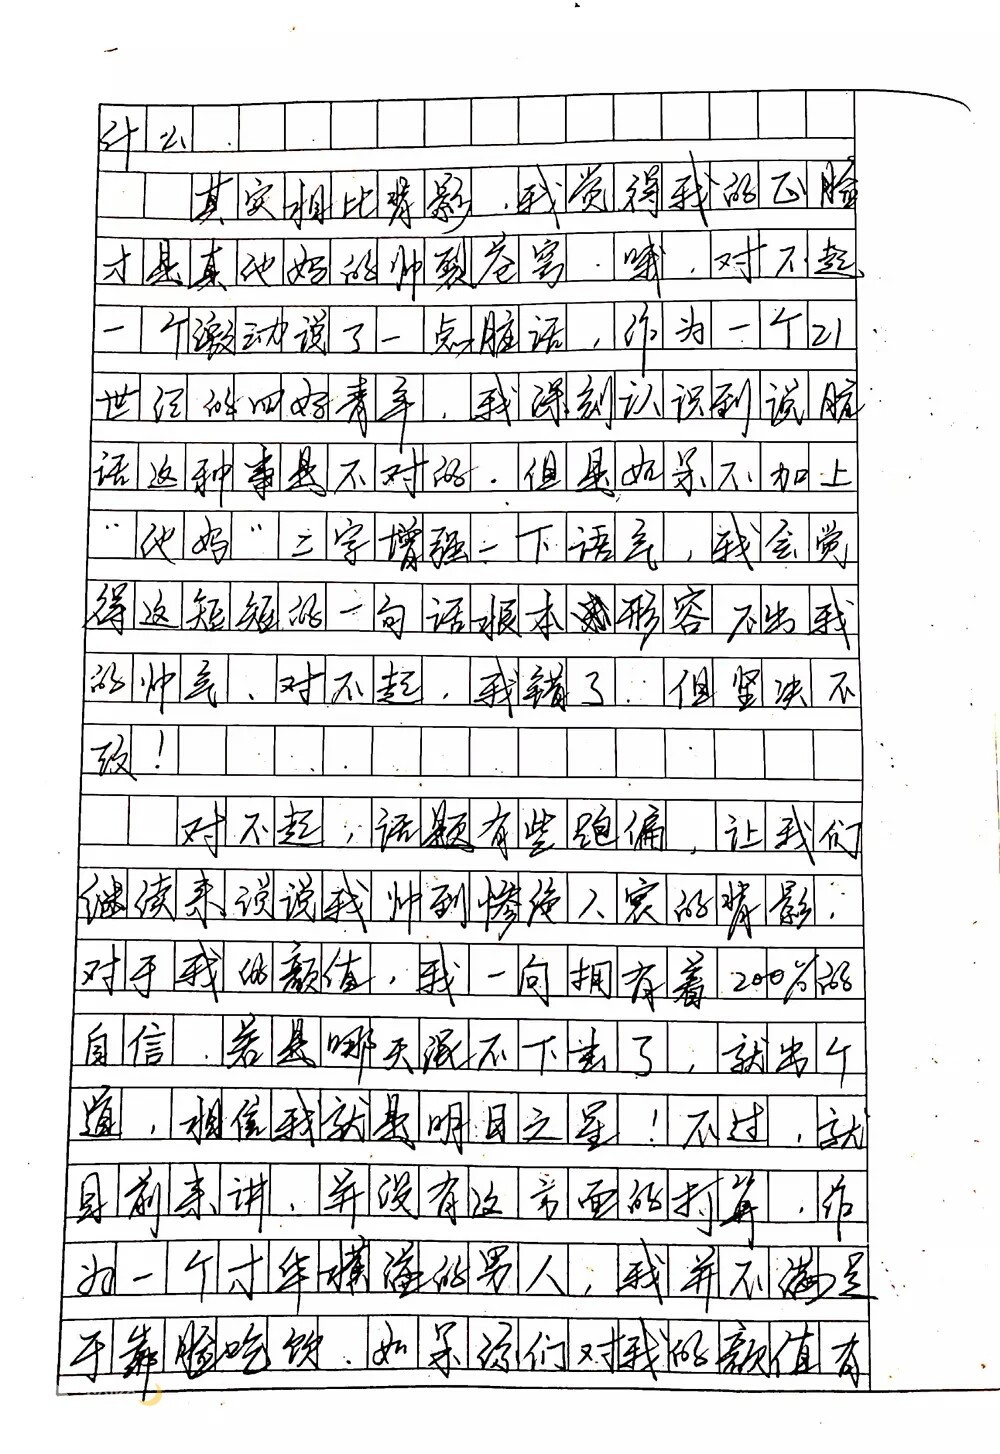 什么.
其实相比背影.我觉得我的正脸
才是真他妈的帅到苍穹.哦.对不起
一个激动说了一点脏话,作为一个21
世纪的四好青年,我深刻认识到说脏
话这种事是不对的.但是如果不加上
“他妈”二字增强一下语气,我会觉
得这短短的一句话根本形容不出我
的帅气、对不起,我错了.但坚决不
改!
对不起,话题有些跑偏,让我们
继续来说说我帅到惨绝人寰的背影.
对于我的颜值,我一向拥有着200%的
自信.若是哪天混不下去了,就出个
道,相信我就是明日之星!不过,就
目前来讲,并没有这方面的打算.作
为一个才华横溢的男人,我并不满足
于靠脸吃饭.如果你们对我的颜值有